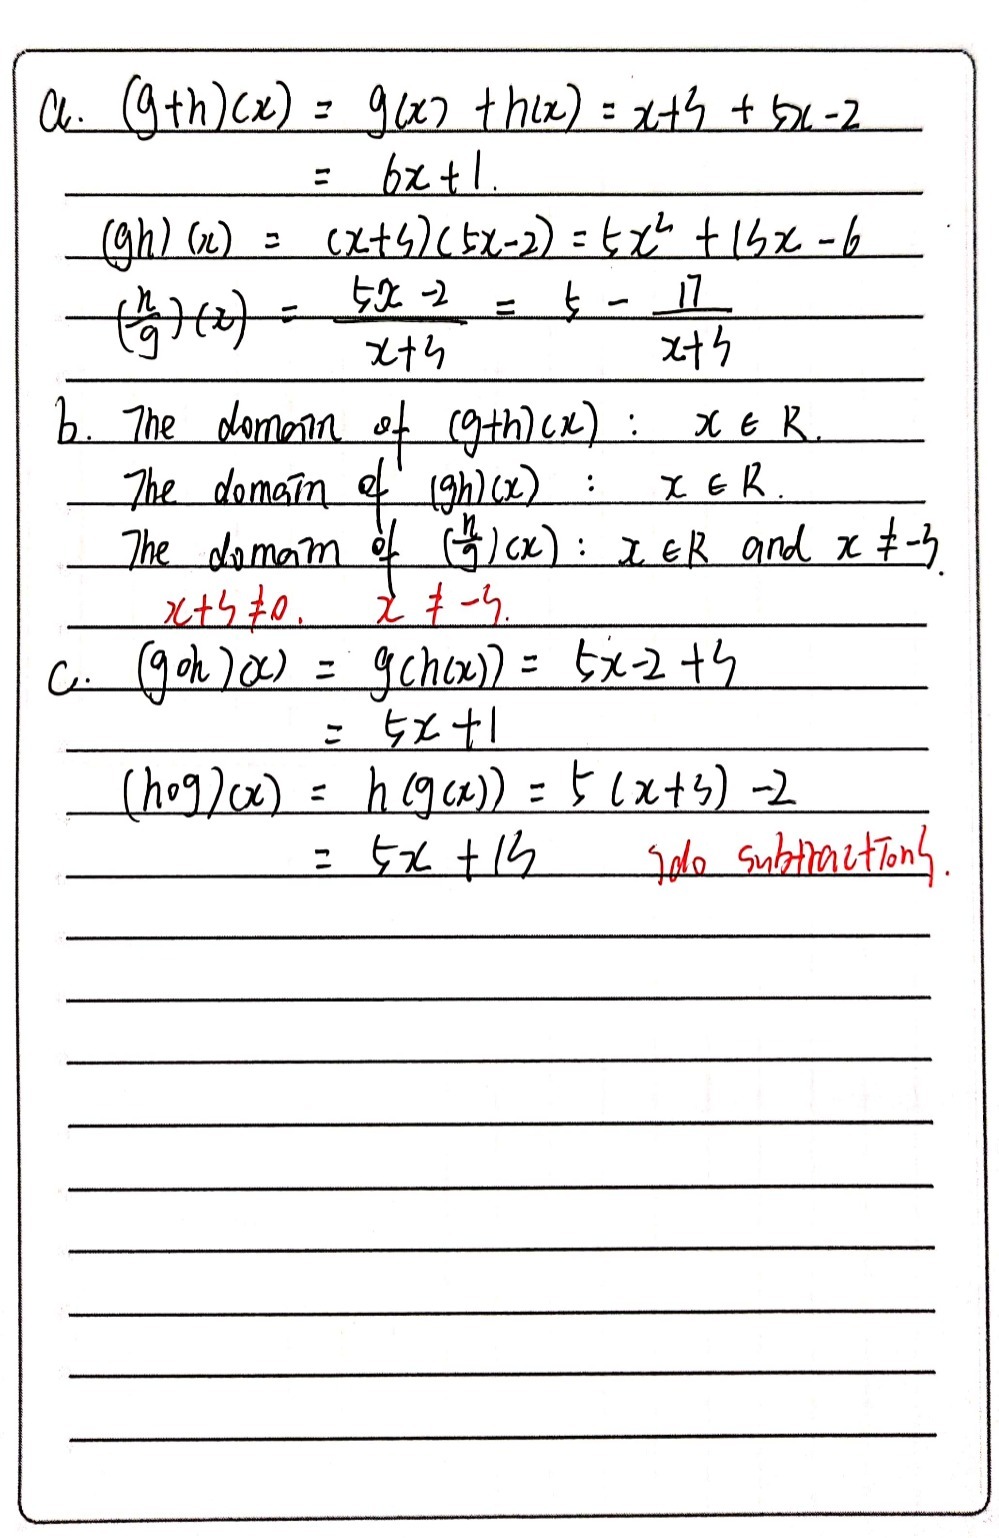 a. (g+h)(x) = g(x) + h(x) = x+3 + 5x-2
= 6x+1.
(gh)(x) = (x+3)(5x-2) = 5x² + 13x - 6
(h/g)(x) = (5x-2)/(x+3) = 5 - 17/(x+3)
b. The domain of (g+h)(x) : x ∈ R.
The domain of (gh)(x) : x ∈ R.
The domain of (h/g)(x) : x ∈ R and x ≠ -3.
x+3≠0. x ≠ -3.
c. (goh)(x) = g(h(x)) = 5x-2+3
= 5x+1
(hog)(x) = h(g(x)) = 5(x+3)-2
= 5x+13 subtractions.